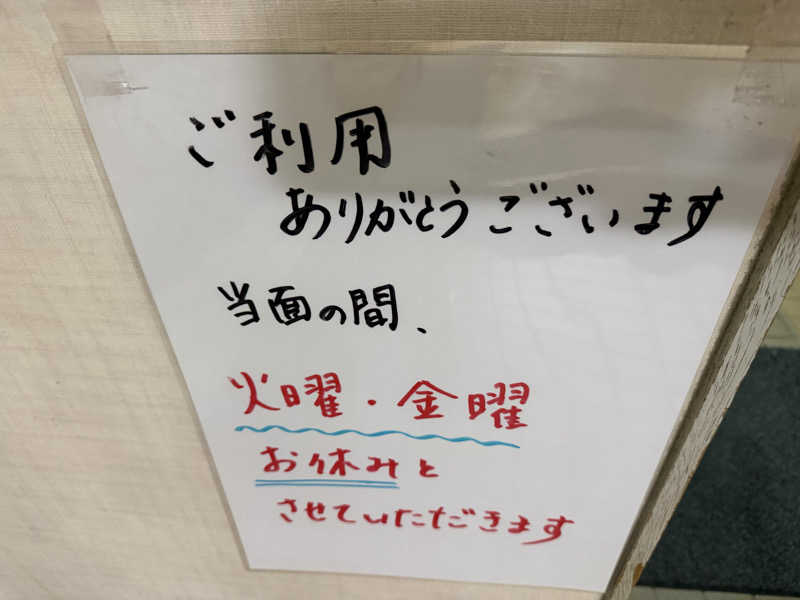 ご利用
ありがとうございます
当面の間、
火曜・金曜
お休みと
させていただきます